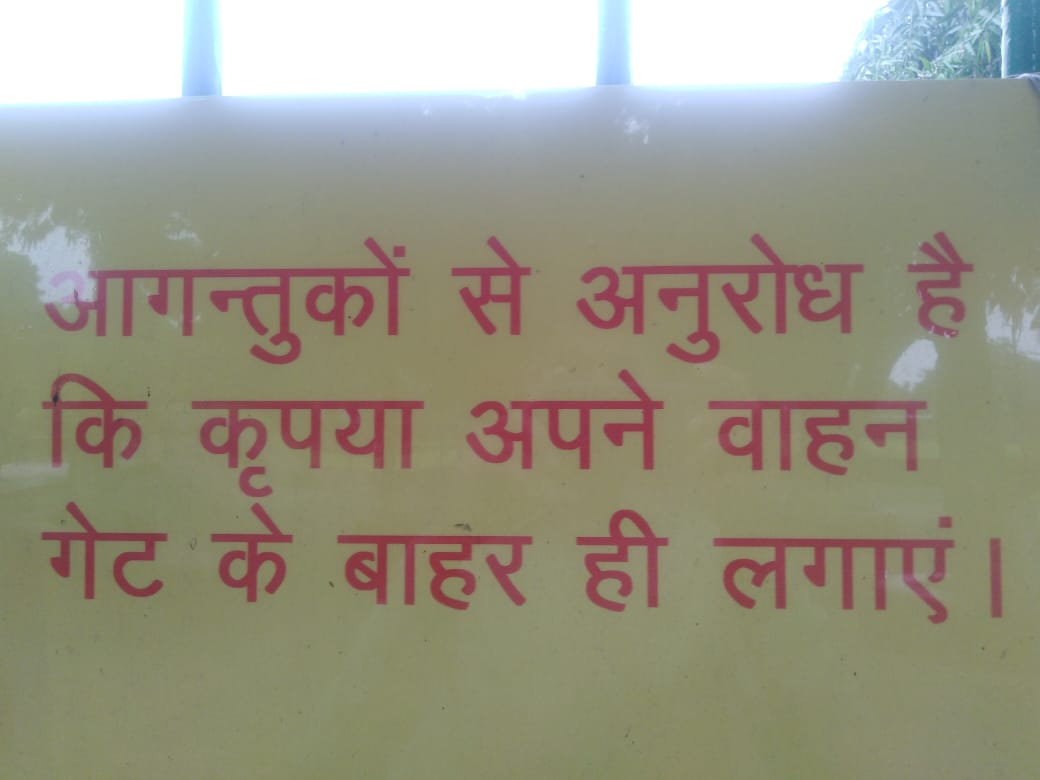 आगन्तुकों से अनुरोध है
कि कृपया अपने वाहन
गेट के बाहर ही लगाएं।